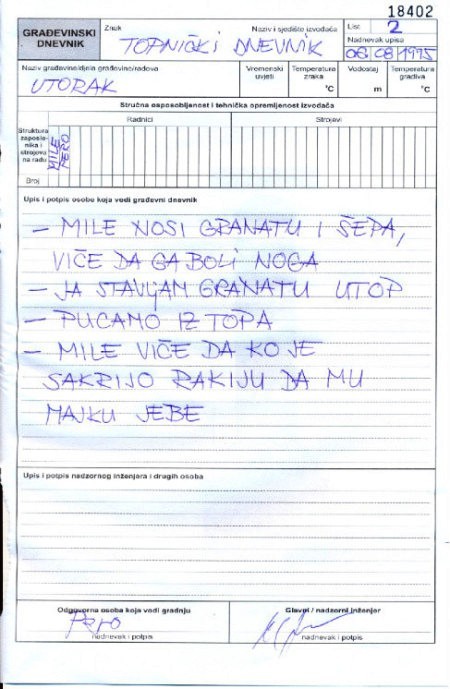 18402
GRAĐEVINSKI DNEVNIK
Znak
Naziv i sjedište izvođača
TOPNIČKI DNEVNIK
List
2
Nadnevak upisa
06 08 1995
Naziv građevine/dijela građevine/radova
UTORAK
Vremenski uvjeti
Temperatura zraka
°C
Vodostaj
m
Temperatura gradiva
°C
Stručna osposobljenost i tehnička opremljenost izvođača
Struktura zaposlenika i strojova na radu
Radnici
Strojevi
MILE
PERO
Broj
Upis i potpis osobe koja vodi građevni dnevnik
– MILE NOSI GRANATU I ŠEPA,
VIČE DA GA BOLI NOGA
– JA STAVLJAM GRANATU UTOP
– PUCAMO IZ TOPA
– MILE VIČE DA KO JE
SAKRIJO RAKIJU DA MU
MAJKU JEBE
Upis i potpis nadzornog inženjera i drugih osoba
Odgovorna osoba koja vodi gradnju
Pero
nadnevak i potpis
Glavni / nadzorni inženjer
nadnevak i potpis